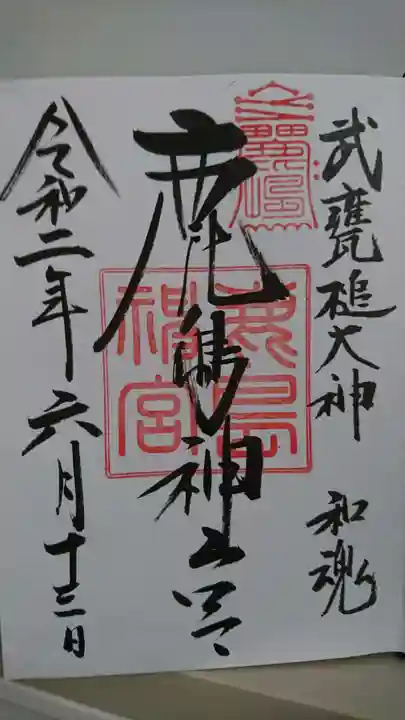 武甕槌大神 和魂
鹿島神宮
鹿島
神宮
令和二年六月十三日